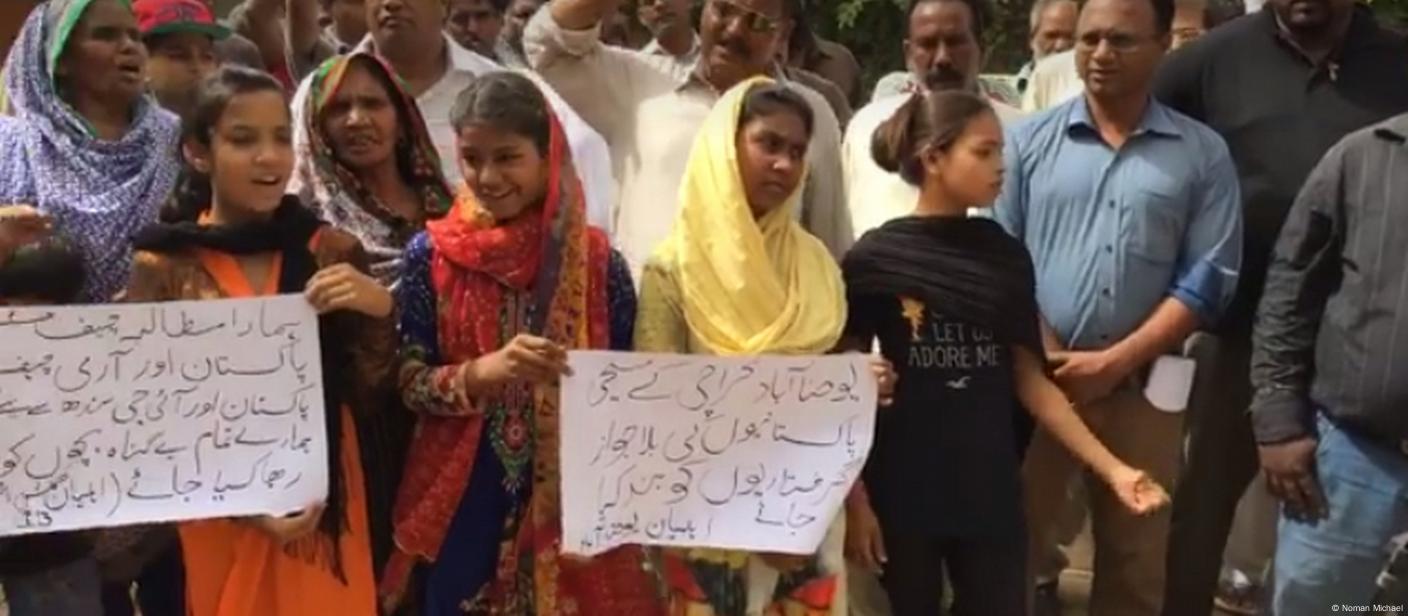 ہمارا مطالبہ چیف
پاکستان اور آرمی چیف
پاکستان اور آئی جی سندھ سے ہے
ہمارے تمام بے گناہ بچوں کو
رھا کیا جائے (اہلیان
13
یوحنا آباد کراچی کے مسیحی
پاکستانیوں کی بلاجواز
گرفتاریوں کو بند کیا
جائے
اہلیان
LET US
ADORE ME
© Noman Michael